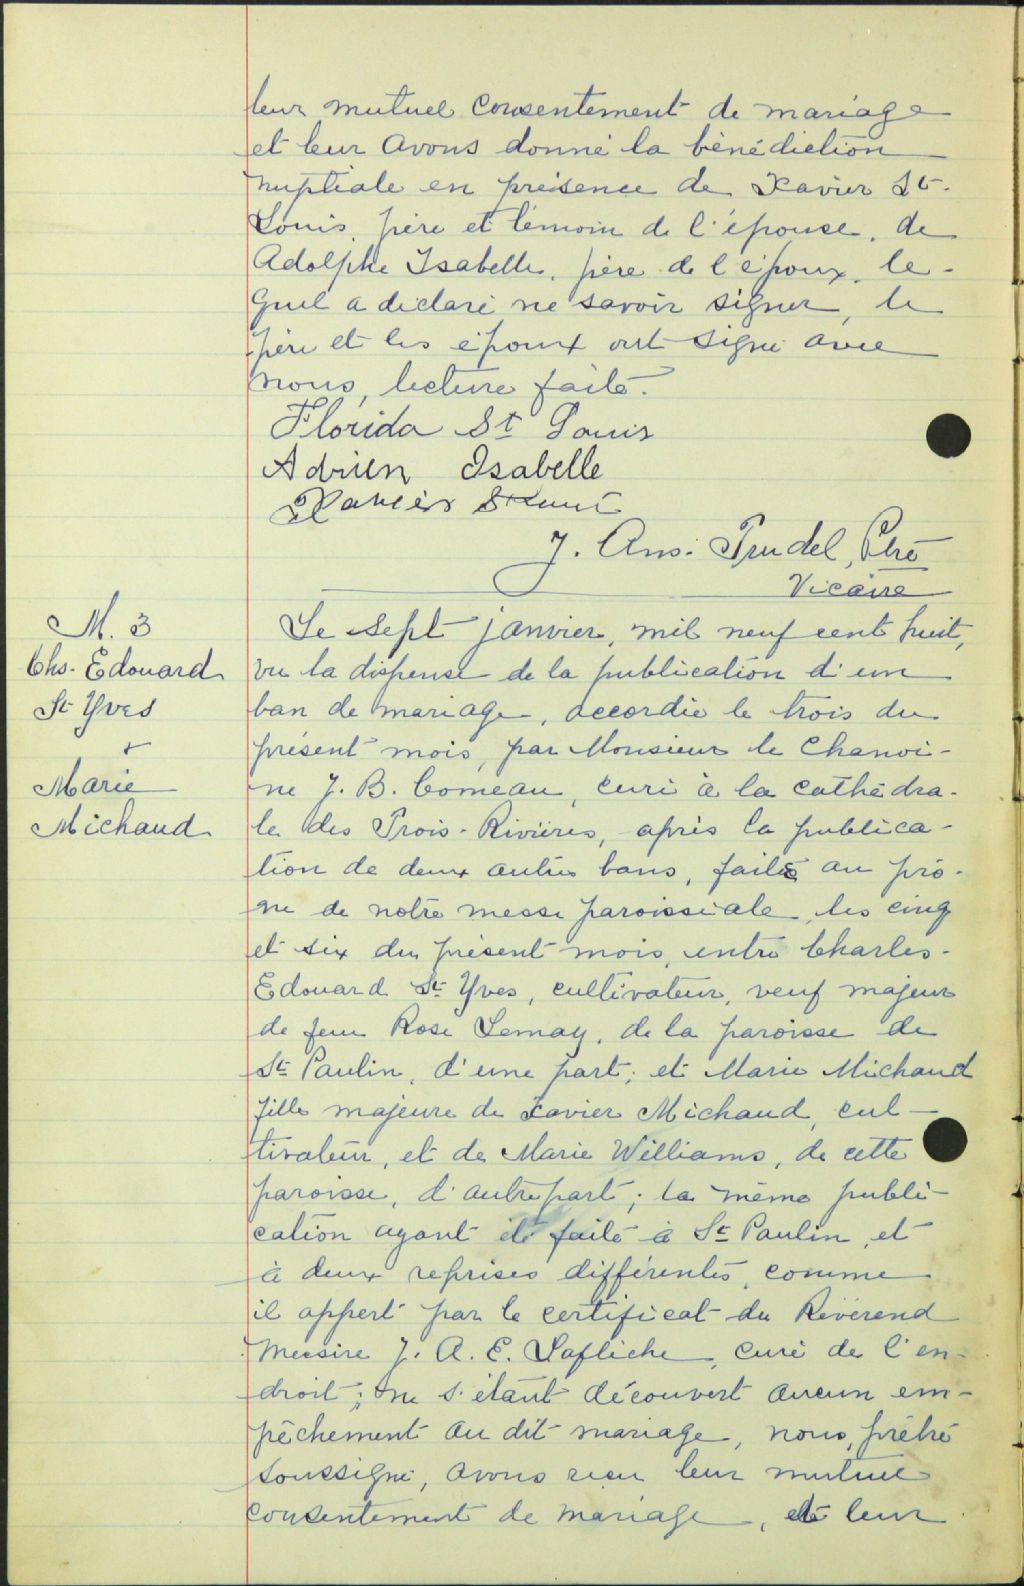 leur mutuel consentement de mariage
et leur avons donné la bénédiction
nuptiale en présence de Xavier St-
Louis, père et témoin de l'épouse, de
Adolphe Isabelle, père de l'époux, le-
quel a déclaré ne savoir signer, le
père et les époux ont signé avec
nous, lecture faite.
Florida St Louis
Adrien Isabelle
Xavier St
J. Ans. Trudel, Ptre
Vicaire
M. 3
Chs. Edouard
St Yves
+
Marie
Michaud
Le sept janvier, mil neuf cent huit,
vu la dispense de la publication d'un
ban de mariage, accordée le trois du
présent mois, par Monsieur le Chanoi-
ne J. B. Comeau, curé à la cathédra-
le des Trois-Rivières, après la publica-
tion de deux autres bans, faite au prô-
ne de notre messe paroissiale, les cinq
et six du présent mois, entre Charles-
Edouard St Yves, cultivateur, veuf majeur
de feu Rose Lemay, de la paroisse de
St Paulin, d'une part; et Marie Michaud
fille majeure de Xavier Michaud, cul-
tivateur, et de Marie Williams, de cette
paroisse, d'autre part; la même publi-
cation ayant été faite à St Paulin, et
à deux reprises différentes, comme
il appert par le certificat du Révérend
Messire J. A. E. Laflèche, curé de l'en-
droit; ne s'étant découvert aucun em-
pêchement au dit mariage, nous, prêtre
soussigné, avons reçu leur mutuel
consentement de mariage, et leur